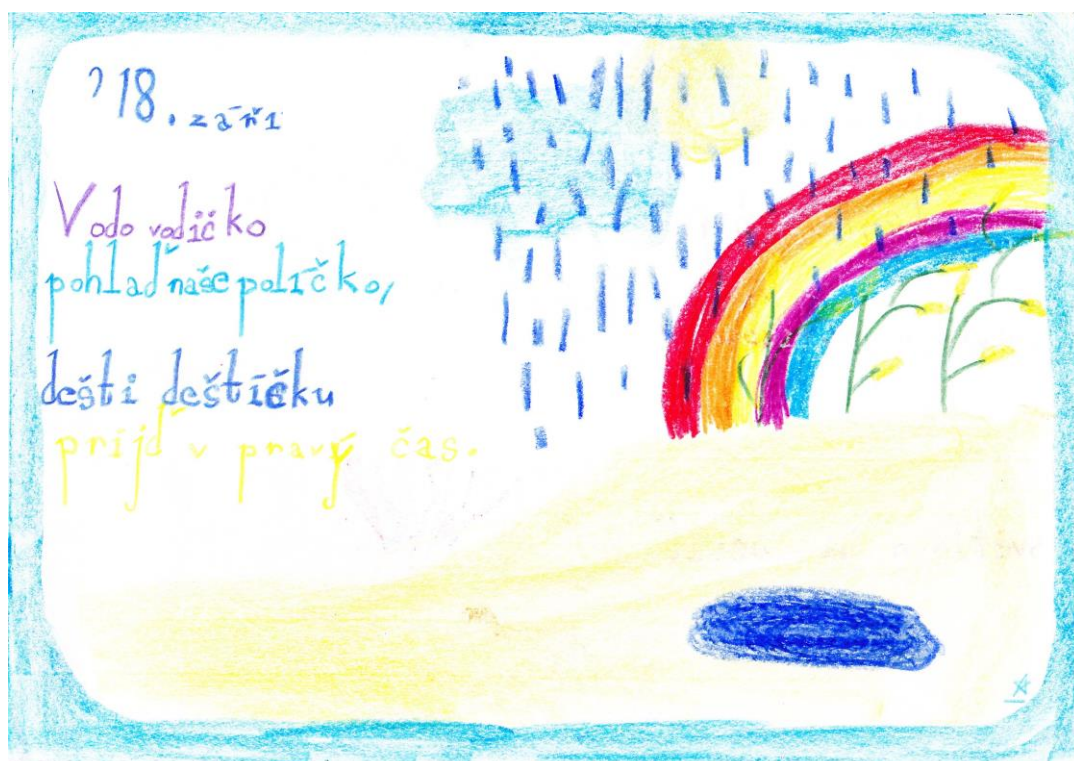 ’18. září
Vodo vodičko
pohlaď naše políčko,
dešti deštíčku
prijď v pravý čas.